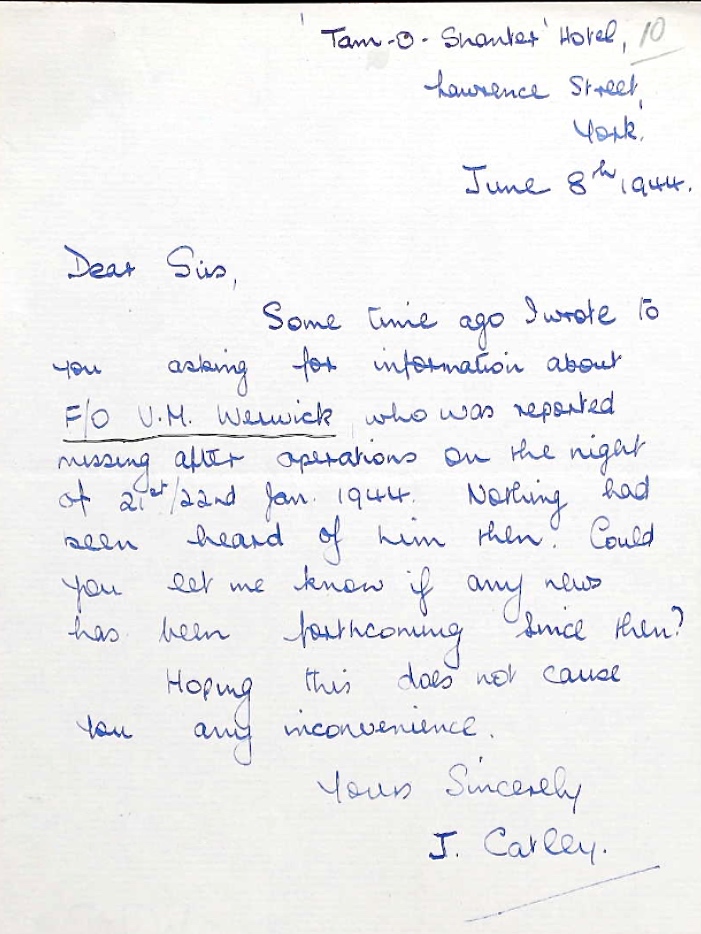 'Tam-O-Shanter' Hotel, 10
Lawrence Street,
York.
June 8th, 1944.
Dear Sirs,
Some time ago I wrote to
you asking for information about
F/O V.M. Werwick who was reported
missing after operations on the night
of 21st/22nd Jan. 1944. Nothing had
been heard of him then. Could
you let me know if any news
has been forthcoming since then?
Hoping this does not cause
you any inconvenience.
Yours Sincerely
J. Catley.